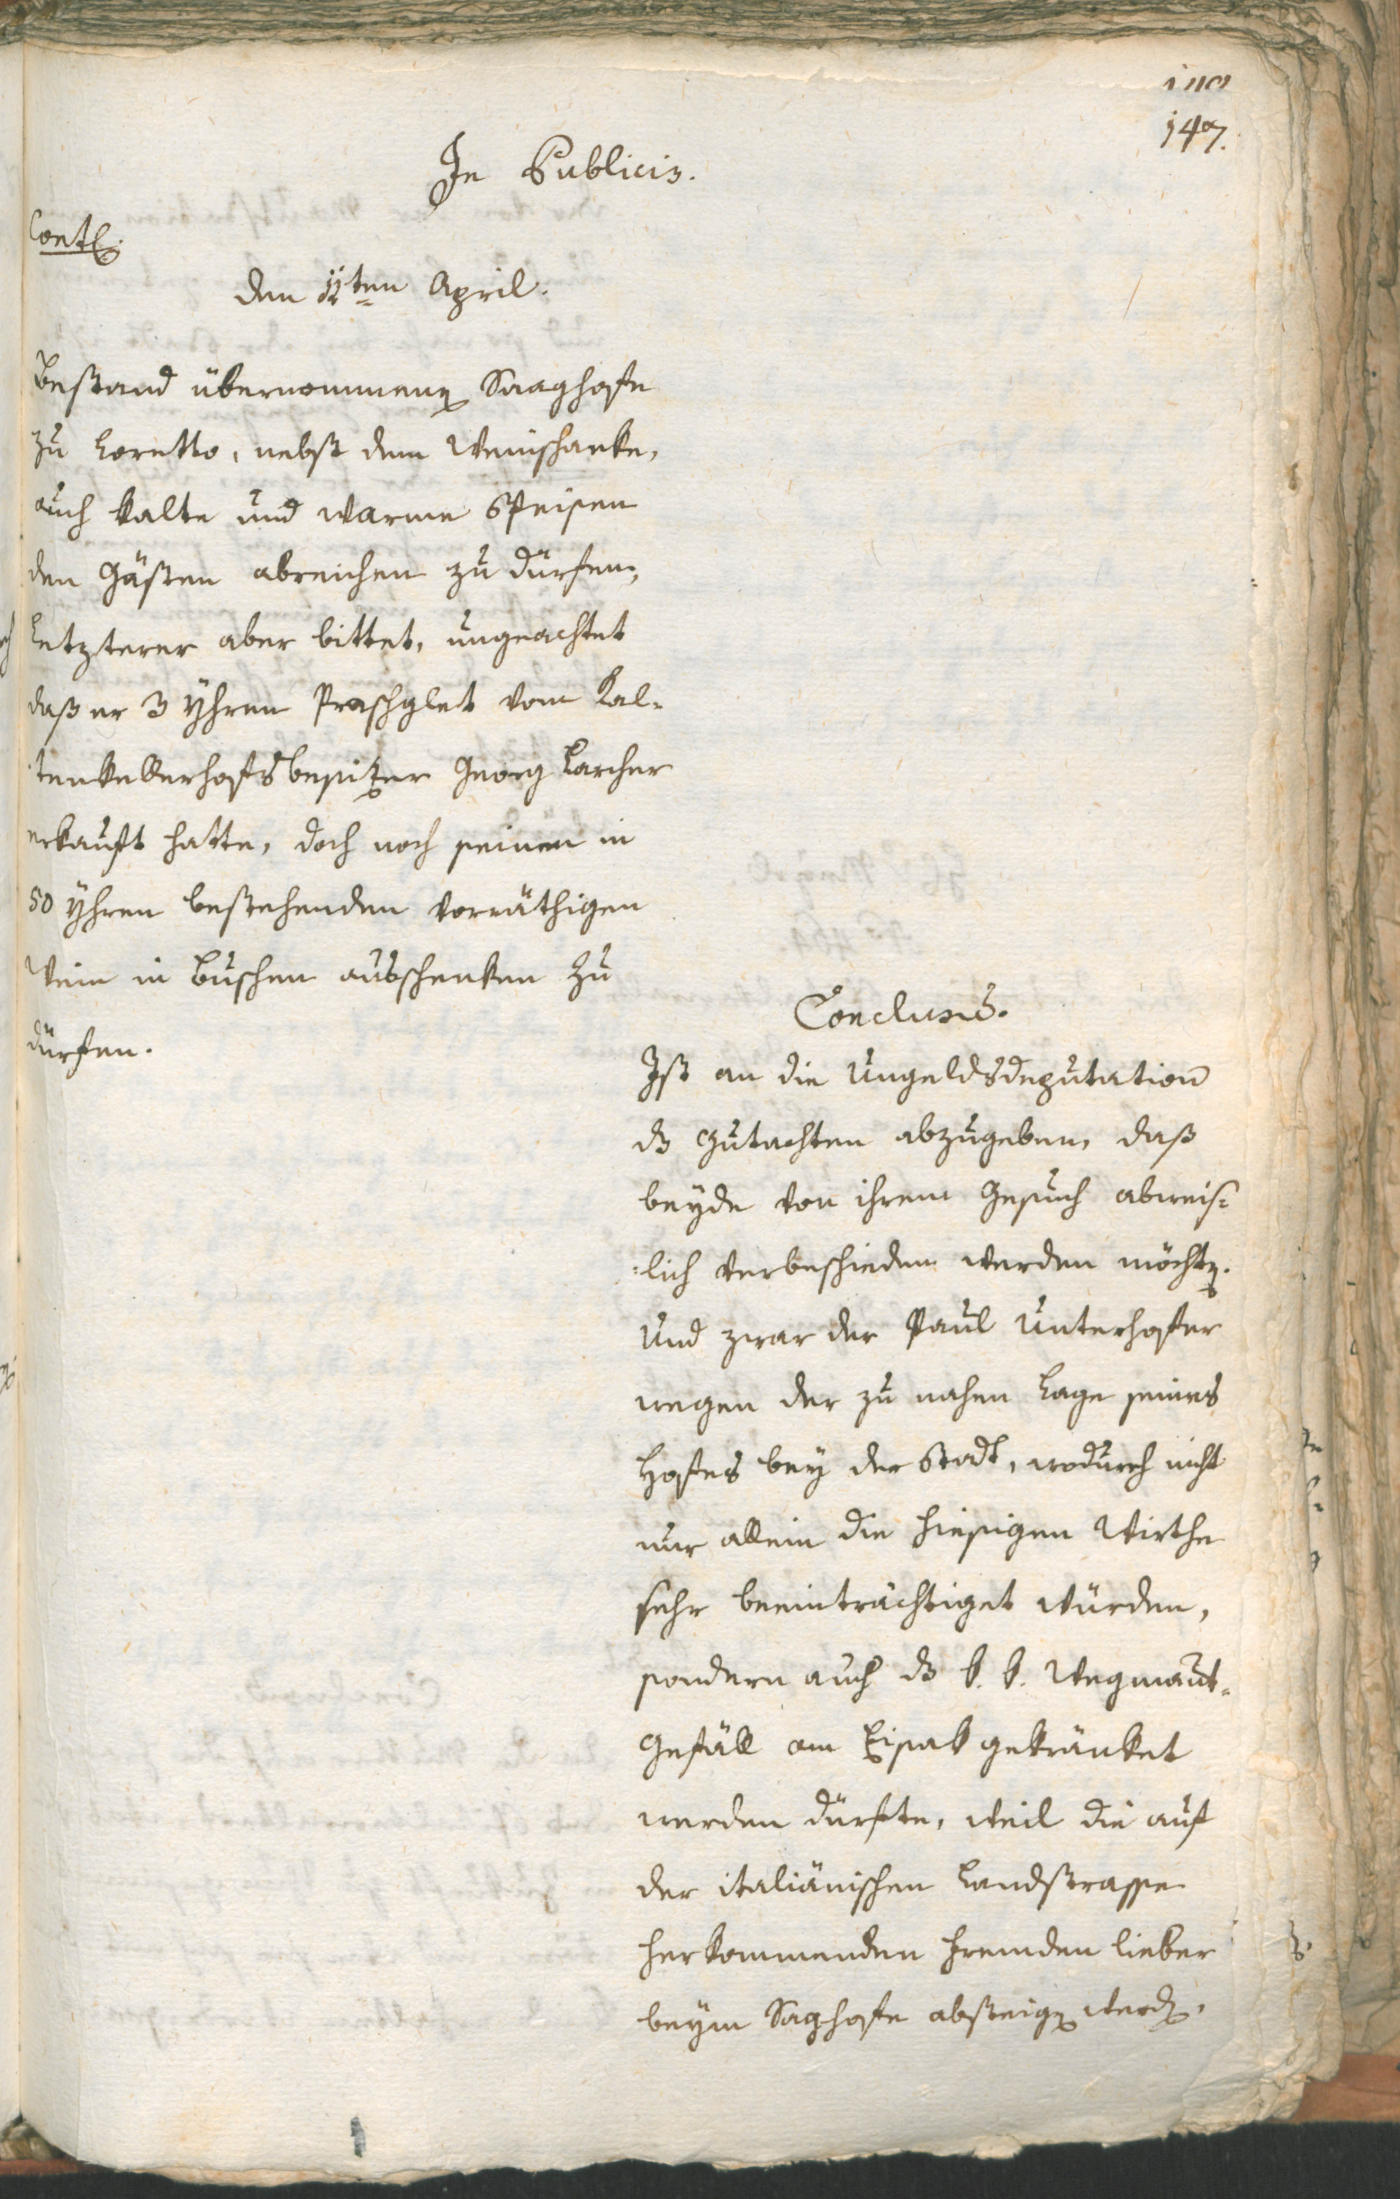 147.
In Publicis.
Cont.
den 11ten April.
Bestand übernommenen Saaghofe
zu Loretto, nebst dem Weinschanke,
auch kalte und warme Speisen
den Gästen abreichen zu dürfen,
Letzterer aber bittet, ungeachtet
daß er 3 Yhren Praschglet vom Kal-
tenkellerhofsbesizer Georg Larcher
erkauft hatte, doch noch seinen in
50 Yhren bestehenden vorräthigen
Wein in Buschen ausschenken zu
dürfen.
Conclusum.
Ist an die Ungeldsdeputation
das Gutachten abzugeben, daß
beyde von ihrem Gesuch abweis-
lich verbeschieden werden möchten.
Und zwar der Paul Unterhofer
wegen der zu nahen Lage seines
Hofes bey der Stadt, wodurch nicht
nur allein die hiesigen Wirthe
sehr beeinträchtiget würden,
sondern auch das k. k. Wegmaut-
Gefäll am Eisak gekränket
werden dürfte, weil die auf
der italiänischen Landstrasse
herkommenden Fremden lieber
beym Saghofe absteigen werden,